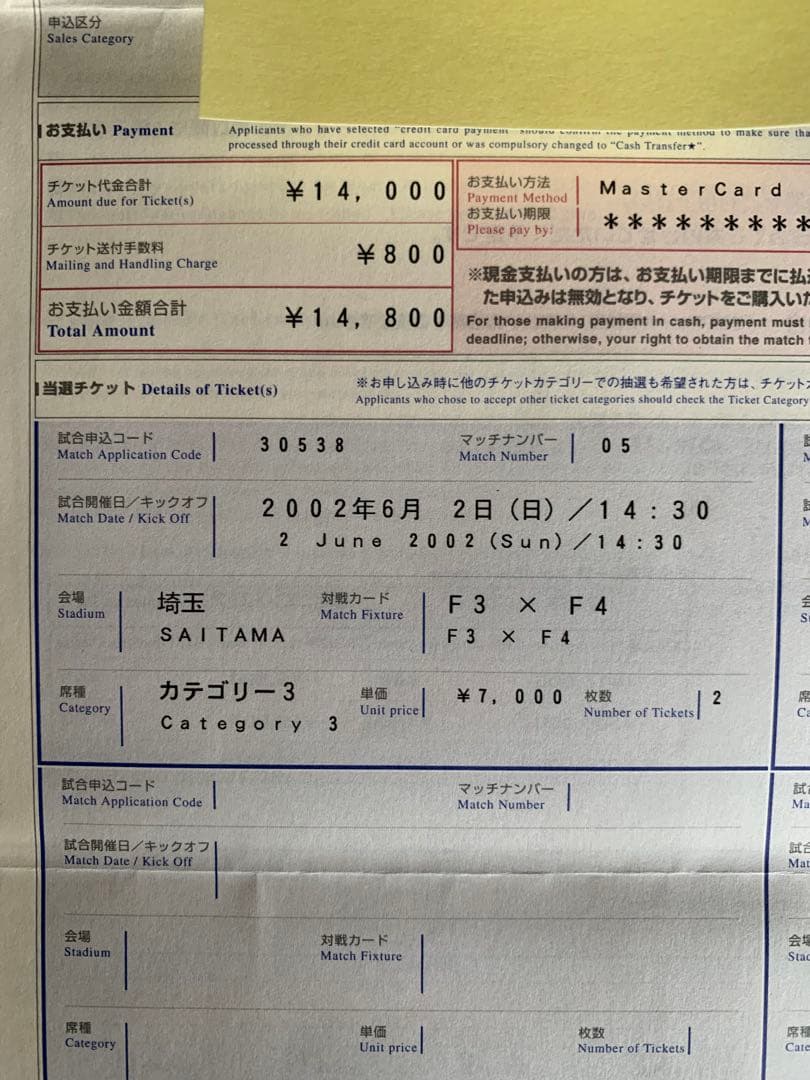 申込区分
Sales Category
お支払い Payment
Applicants who have selected "credit card payment" should confirm the payment method to make sure
processed through their credit card account or was compulsory changed to "Cash Transfer★".
チケット代金合計
Amount due for Ticket(s)
¥14,000
お支払い方法
Payment Method
MasterCard
お支払い期限
Please pay by:
*********
チケット送付手数料
Mailing and Handling Charge
¥800
お支払い金額合計
Total Amount
¥14,800
※現金支払いの方は、お支払い期限までに払
た申込みは無効となり、チケットをご購入い
For those making payment in cash, payment must
deadline; otherwise, your right to obtain the match
当選チケット Details of Ticket(s)
※お申し込み時に他のチケットカテゴリーでの抽選も希望された方は、チケット
Applicants who chose to accept other ticket categories should check the Ticket Category
試合申込コード
Match Application Code
30538
マッチナンバー
Match Number
05
試合開催日／キックオフ
Match Date / Kick Off
2002年6月 2日(日)／14:30
2 June 2002(Sun)／14:30
会場
Stadium
埼玉
SAITAMA
対戦カード
Match Fixture
F3 × F4
F3 × F4
席種
Category
カテゴリー3
Category 3
単価
Unit price
¥7,000
枚数
Number of Tickets
2
試合申込コード
Match Application Code
マッチナンバー
Match Number
試合開催日／キックオフ
Match Date / Kick Off
会場
Stadium
対戦カード
Match Fixture
席種
Category
単価
Unit price
枚数
Number of Tickets